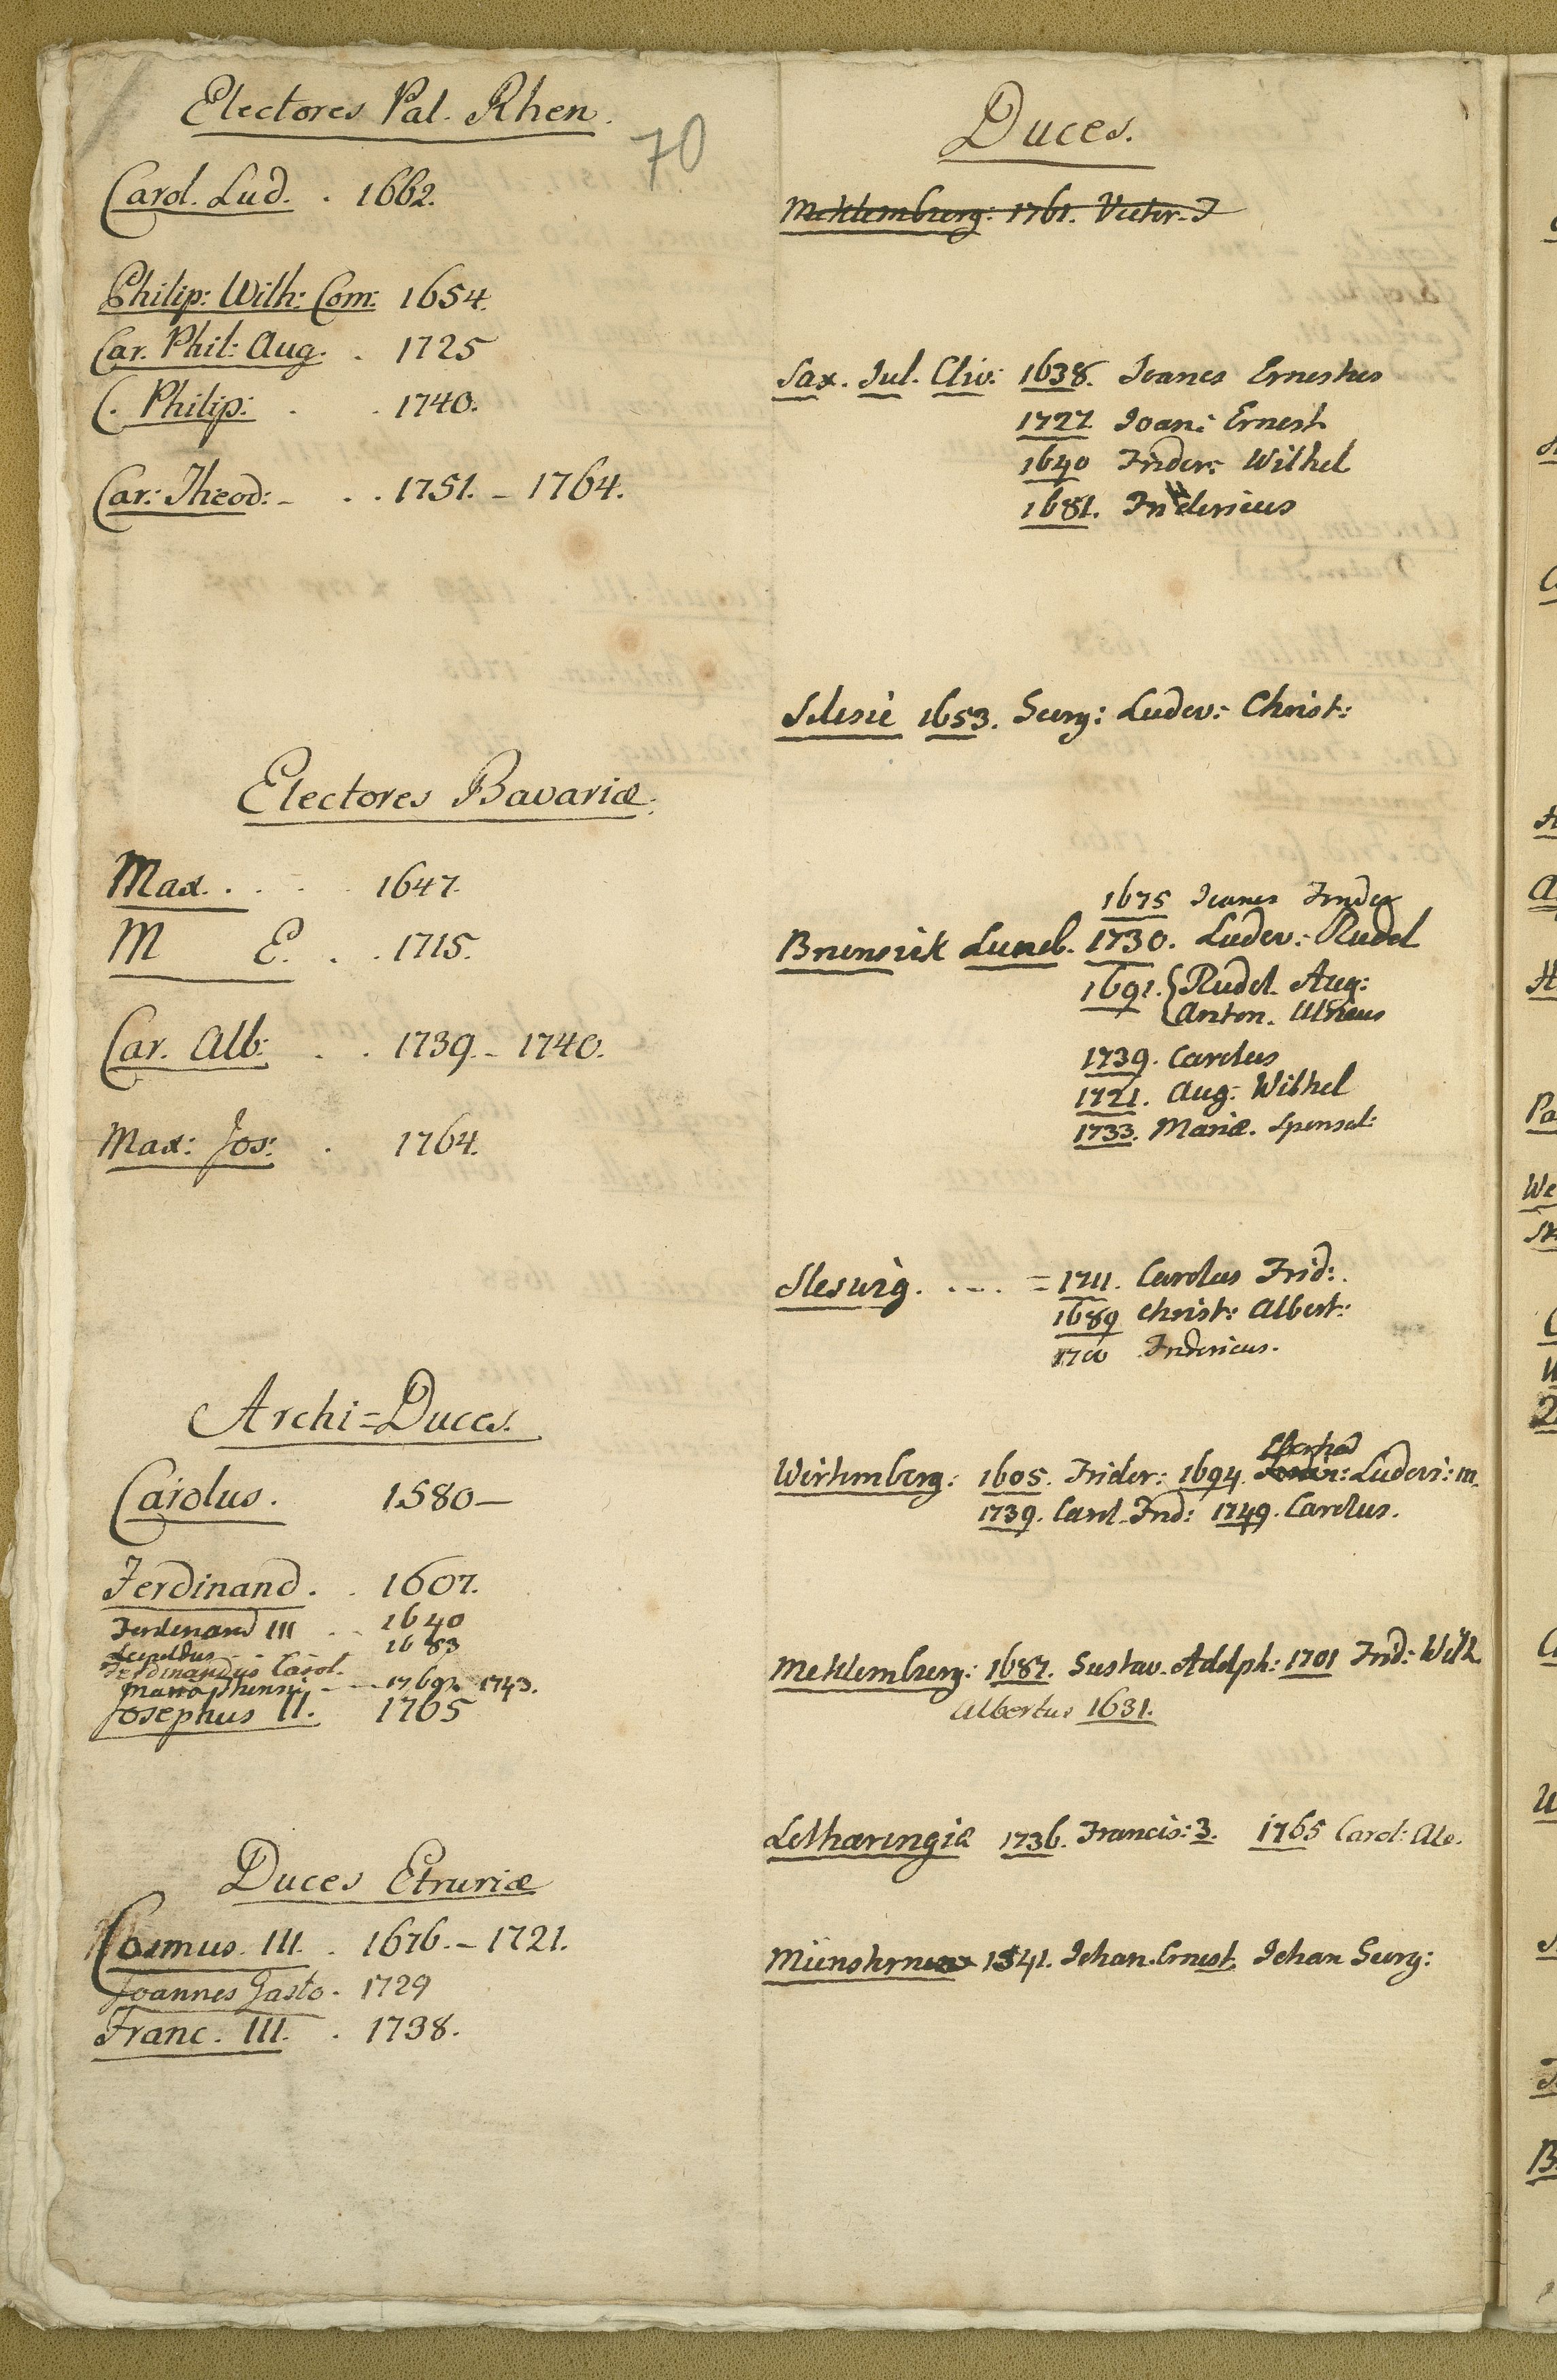 Electores Pal. Rhen.
70
Carol. Lud. . 1662.
Philip: Wilh: Com: 1654.
Car. Phil: Aug. . 1725
C. Philip: . . 1740.
Car: Theod: - . . 1751. - 1764.
Electores Bavariæ.
Max. . . . 1647.
M E. . . 1715.
Car. Alb: . . 1739. - 1740.
Max: Jos: . 1764.
Archi=Duces.
Carolus. 1580 —
Ferdinand. . 1607.
Ferdinand III . . 1640
Leopoldus 1683
Ferdinandus Carol.
1743.
Josephus II. 1765
Duces Etruriæ
Cosmus. III. . 1676. - 1721.
Joannes Gasto. 1729
Franc. III. . 1738.
Duces.
Meklemburg: 1761.
Sax. Jul. Cliv: 1638. Joanes Ernestus
1727 Joan: Ernest
1640 Frider: Wilhel
1681. Fridericus
Silesiè 1653. Georg: Ludov: Christ:
1675 Joanes Frider
Brunsvik Luneb. 1730. Ludov: Rudol
1691. { Rudol. Aug:
Anton. Ulricus
1739. Carolus
1721. Aug: Wilhel
1733. Mariæ. Sponsal:
Slesvig. . . . . = 1711. Carolus Frid:.
1689 Christ: Albert:
1700 Fridericus.
Wirtemberg: 1605. Frider: 1694. Eberhad Ludovi: m.
1739. Carol. Frid: 1749. Carolus.
Meklemburg: 1687. Gustav. Adolph: 1701 Frid: Wilh
Albertus 1631.
Lotharingia 1736. Francis: 3. 1765 Carol: Ale.
1541. Johan. Ernest. Johan Georg: